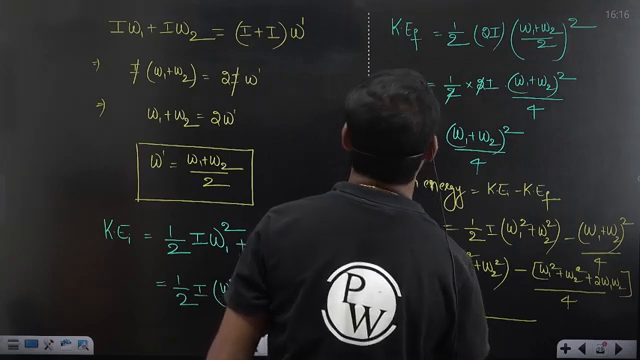 Iω₁ + Iω₂ = (I + I) ω'
⇒ I (ω₁+ω₂) = 2I ω'
⇒ ω₁ + ω₂ = 2ω'
ω' = (ω₁+ω₂)/2
K·Eᵢ = 1/2 Iω₁² +
= 1/2 I (ω
16:16
K·E_f = 1/2 (2I) ((ω₁+ω₂)/2)²
= 1/2 × 2I (ω₁+ω₂)²/4
(ω₁+ω₂)²/4
energy = K·Eᵢ - K·E_f
= 1/2 I (ω₁²+ω₂²) - (ω₁+ω₂)²/4
+ω₂²) - [ω₁²+ω₂²+2ω₁ω₂]/4
PW